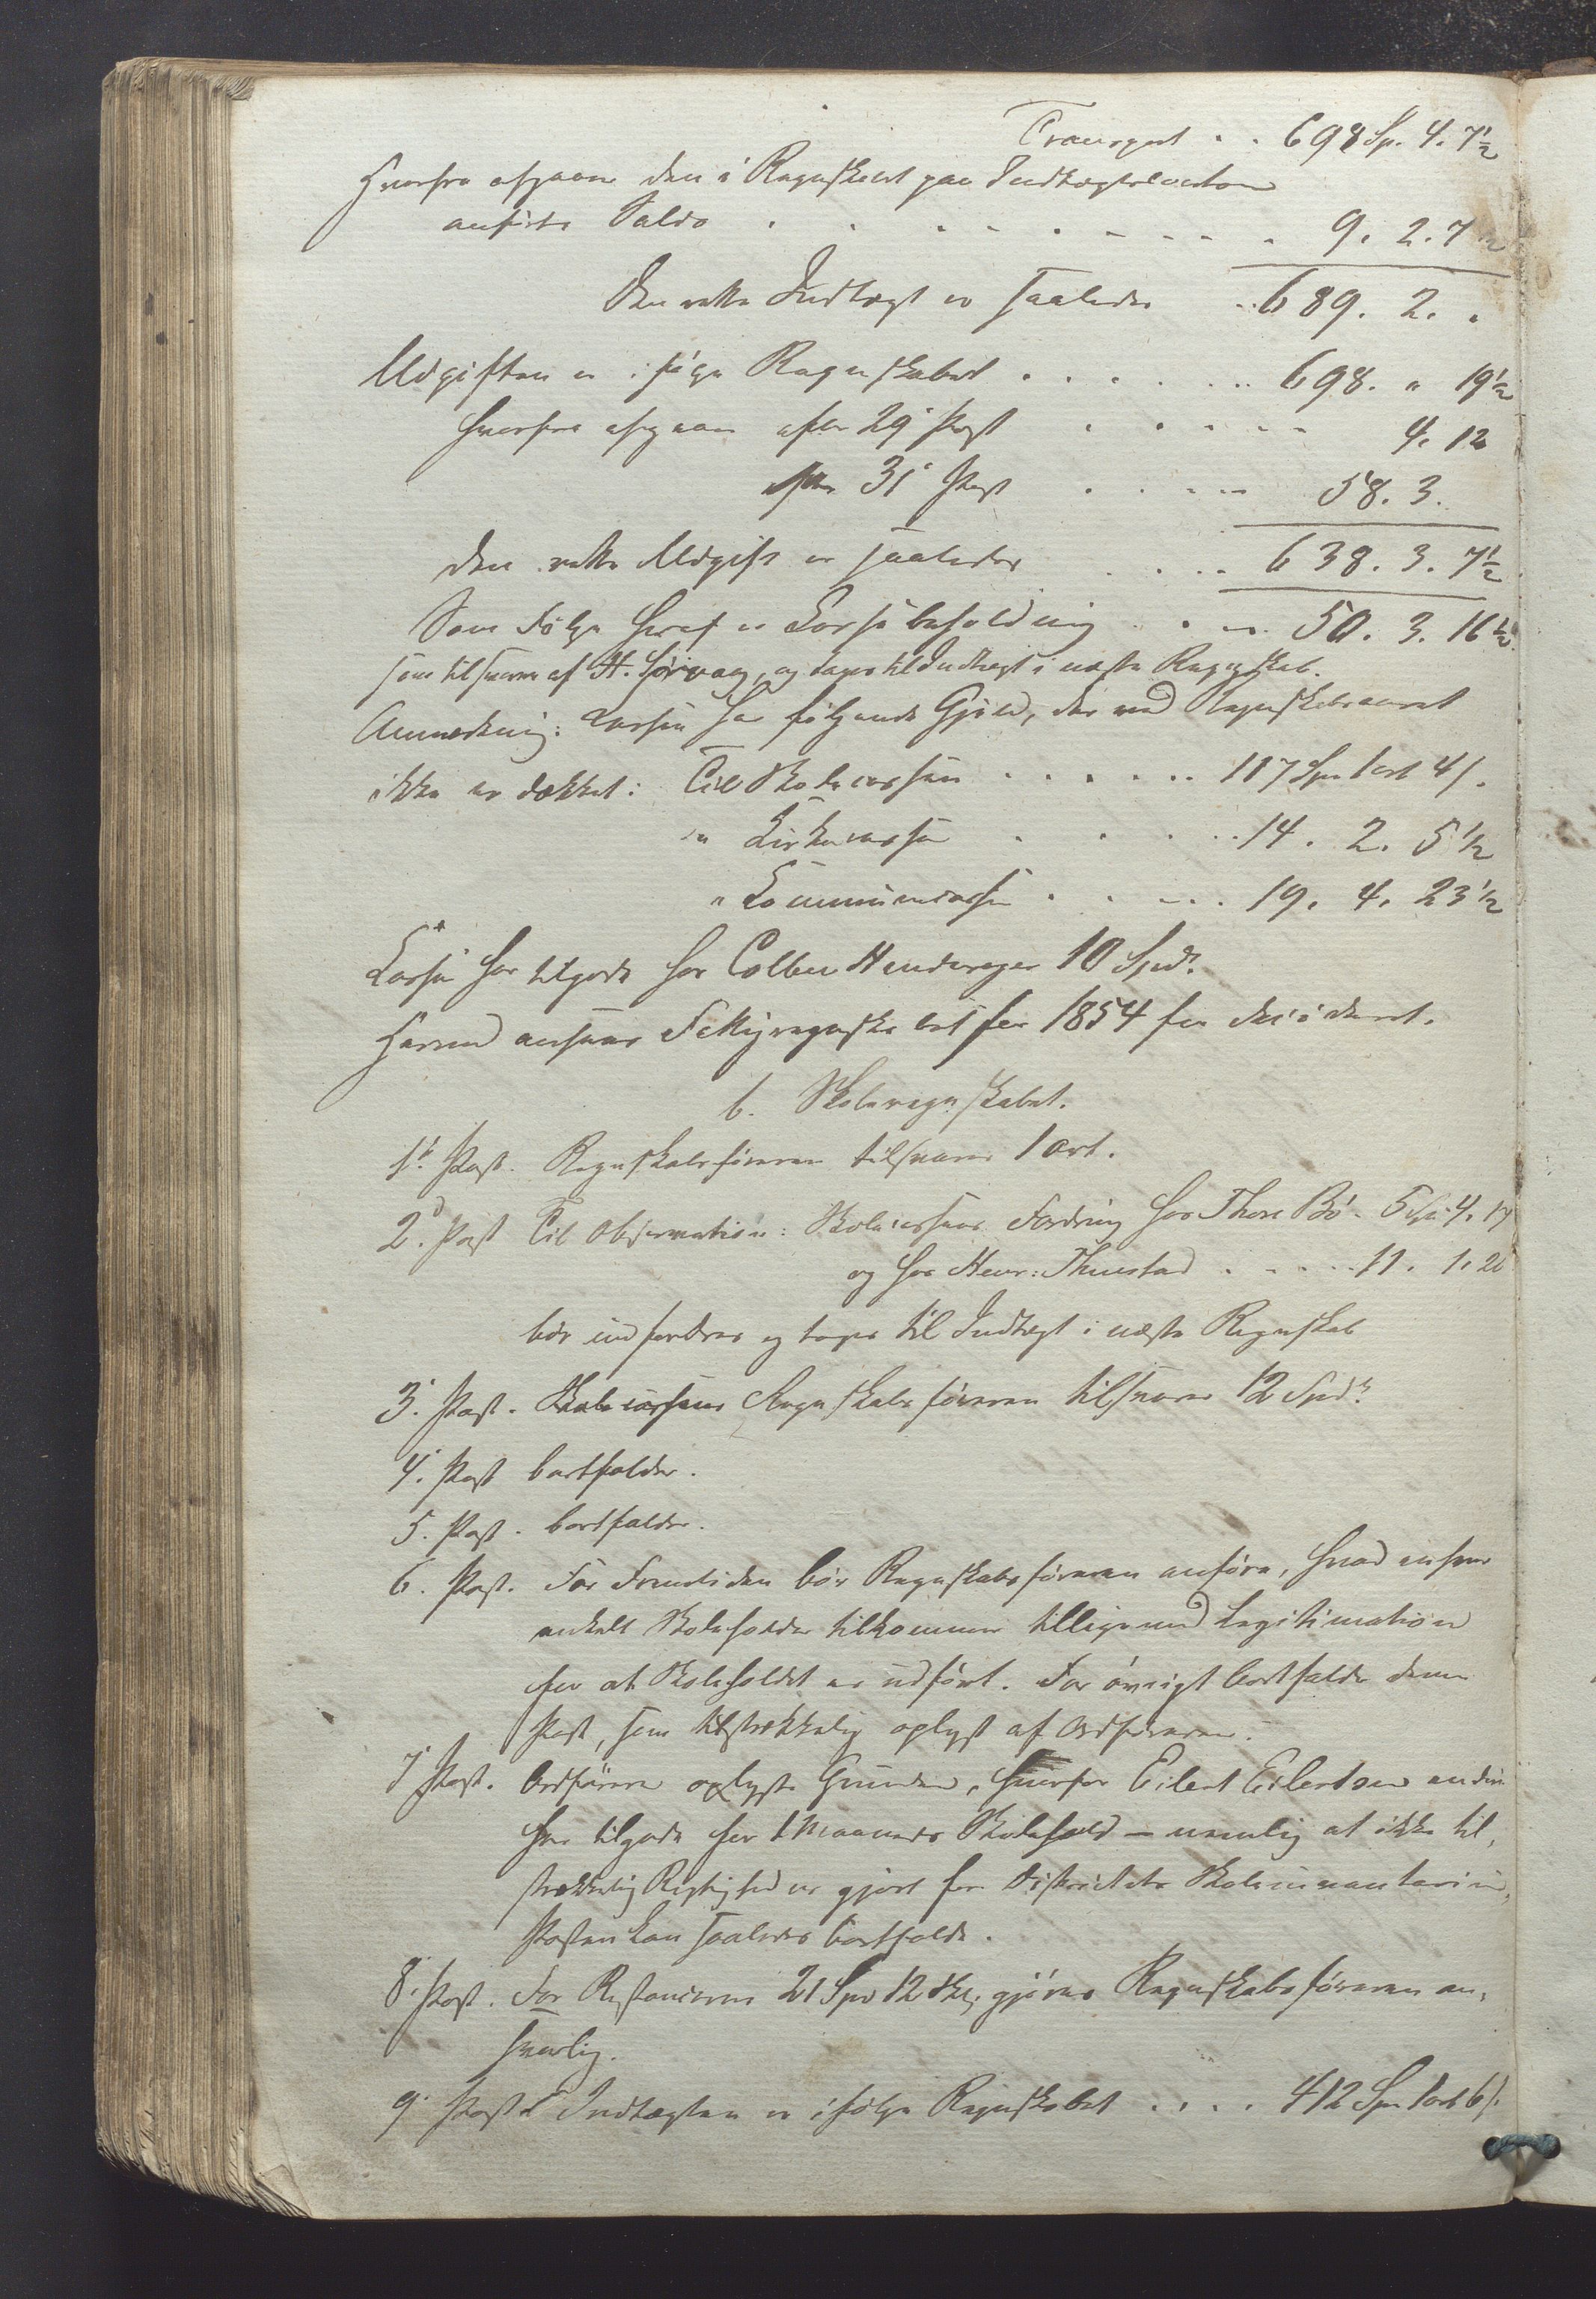 Transport . . 698 Sp. 4. 7½
Hvorfra afgaaer den i Regnskabet paa Indtægtsconto
anførte Saldo . . . . . . . . . 9. 2. 7½
Den rette Indtægt er saaledes . . 689. 2. "
Udgiften er ifølge Regnskabet . . . . . . 698. " 19½
hvorfra afgaaer efter 29 Post . . . . . 4. 12
efter 31 Post . . . . 58. 3.
den rette Udgift er saaledes . . . . 638. 3. 7½
Som Følge heraf er Cassabeholdning . . . 50. 3. 16½
som tilsvares af H. Hørvaag, og tages til Indtægt i næste Regnskab.
Anmærkning: Cassen har følgende Gjæld, der ved Regnskabsaaret
ikke er dækket: Til Skolecassen . . . . . . 117 Spd 1 ort 4 s.
" Kirkecassen . . . . . 14. 2. 5½
" Communecassen . . . . . 19. 4. 23½
Cassen har tilgode hos Colben Hendereger 10 Spd.
Hermed ansees Fattigregnskabet for 1854 for decideret.
b. Skoleregnskabet.
1ste Post. Regnskabsføreren tilsvarer 1 ort.
2d. Post Til Observation: Skolecassens Fordring hos Thore Bø . 5 Sp. 4. 17
og hos Henr: Thuestad . . . . . 11. 1. 20
bør indfordres og tages til Indtægt i næste Regnskab
3. Post. Regnskabsføreren tilsvarer 12 Spd.
4. Post bortfalder.
5. Post. bortfalder.
6. Post. For Fremtiden bør Regnskabsføreren anføre, hvad enhver
enkelt Skoleholder tilkommer tilligemed Legitimation
for at Skoleholdet er udført. For øvrigt bortfalder denne
Post, som tilstrækkelig oplyst af Ordføreren.
7 Post. Ordføreren oplyste Grunden, hvorfor Eilert Eilertsen endnu
har tilgode for 1 Maaneds Skolehold — nemlig at ikke til,
strækkelig Rigtighed er gjort for Districtets Skoleinventarium,
Posten kan saaledes bortfalde.
8. Post. For Restancerne 21 Spd 12 Skl. gjøres Regnskabsføreren an,
svarlig.
9 Post Indtægten er ifølge Regnskabet . . . . 412 Spd 1 ort 6 s.